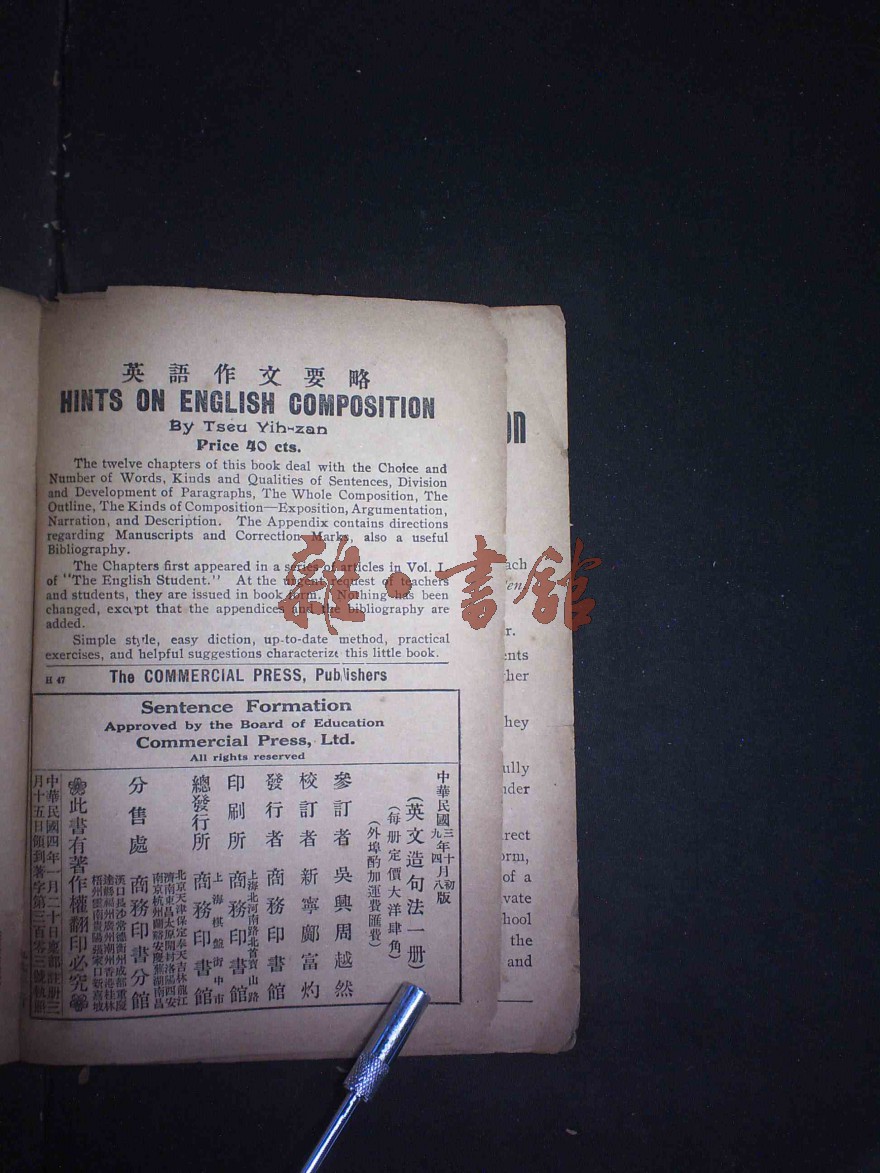 英語作文要略
HINTS ON ENGLISH COMPOSITION
By Tseu Yih-zan
Price 40 cts.
The twelve chapters of this book deal with the Choice and
Number of Words, Kinds and Qualities of Sentences, Division
and Development of Paragraphs, The Whole Composition, The
Outline, The Kinds of Composition—Exposition, Argumentation,
Narration, and Description. The Appendix contains directions
regarding Manuscripts and Correction Marks, also a useful
Bibliography.
The Chapters first appeared in a series of articles in Vol. I.
of "The English Student." At the urgent request of teachers
and students, they are issued in book form. Nothing has been
changed, except that the appendices and the bibliography are
added.
Simple style, easy diction, up-to-date method, practical
exercises, and helpful suggestions characterize this little book.
H 47 The COMMERCIAL PRESS, Publishers
Sentence Formation
Approved by the Board of Education
Commercial Press, Ltd.
All rights reserved
中華民國三年十月初版
九年四月八版
(英文造句法一册)
(每册定價大洋肆角)
(外埠酌加運費匯費)
參訂者 吳興周越然
校訂者 新寧鄺富灼
發行者 商務印書館
印刷所 上海北河南路北首寶山路 商務印書館
總發行所 上海棋盤街中市 商務印書館
分售處 商務印書分館
北京天津保定奉天吉林龍江
濟南太原開封洛陽西安
南京杭州蘭谿安慶蕪湖南昌
漢口長沙常德衡州成都重慶
福州廣州潮州香港桂林
梧州雲南貴陽張家口新嘉坡
此書有著作權翻印必究
中華民國四年一月二十日稟部註册三
月十五日領到著字第三百零三號執照
雜·書館
on
ach
en
r.
ents
her
hey
ully
der
rect
orm,
of a
vate
hool
the
and